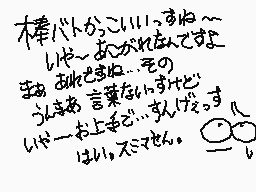 棒バトかっこいいっすね～
いや～あこがれなんですよ
まぁ あれですね…その
うんまあ 言葉ないっすけど
いや―お上手で…すんげぇっす
はい。スミマせん。